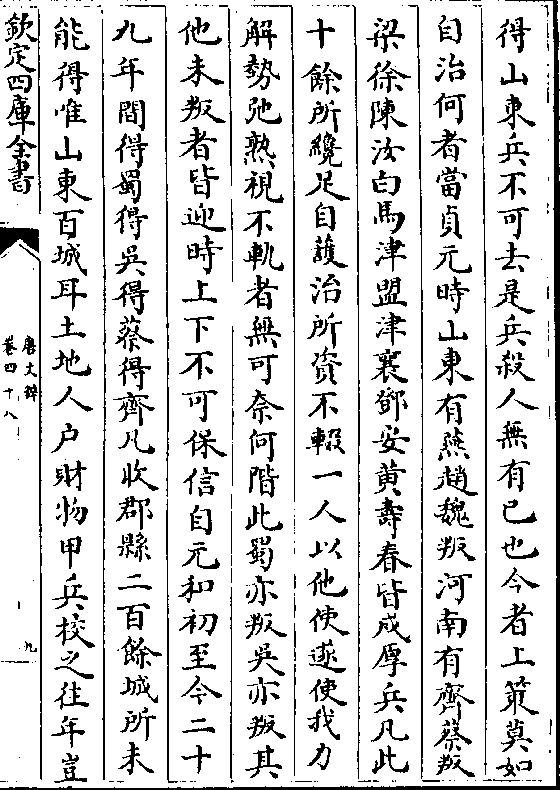 得山東兵不可去是兵殺人無有已也今者上策莫如
自治何者當貞元時山東有燕趙魏叛河南有齊蔡叛
梁徐陳汝白馬津盟津襄鄧安黃壽春皆戍厚兵凡此
十餘所纔足自護治所資不輟一人以他使遂使我力
解勢弛熟視不軌者無可奈何階此蜀亦叛吳亦叛其
他未叛者皆迎時上下不可保信自元和初至今二十
九年間得蜀得吳得蔡得齊凡收郡縣二百餘城所未
能得唯山東百城耳土地人户財物甲兵校之往年豈
欽定四庫全書
唐文粹
卷四十八
九